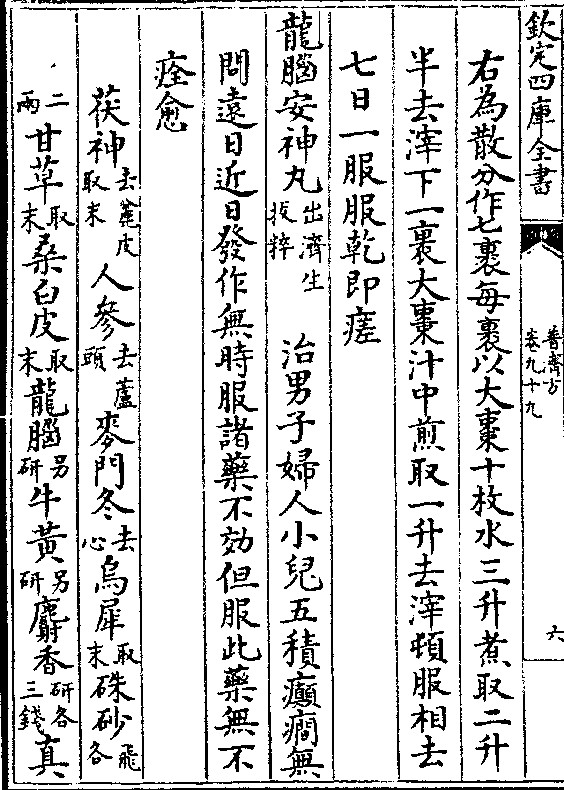 欽定四庫全書
普濟方
卷九十九
六
右為散分作七裹每裹以大棗十枚水三升煮取二升
半去滓下一裹大棗汁中煎取一升去滓頓服相去
七日一服服乾即瘥
龍腦安神丸出濟生拔粹 治男子婦人小兒五積癲癇無
問遠日近日發作無時服諸藥不効但服此藥無不
痊愈
茯神去麄皮取末 人參去蘆頭 麥門冬去心 烏犀取末 硃砂飛各
二兩 甘草取末 桑白皮取末 龍腦另研 牛黃另研 麝香研各三錢 真